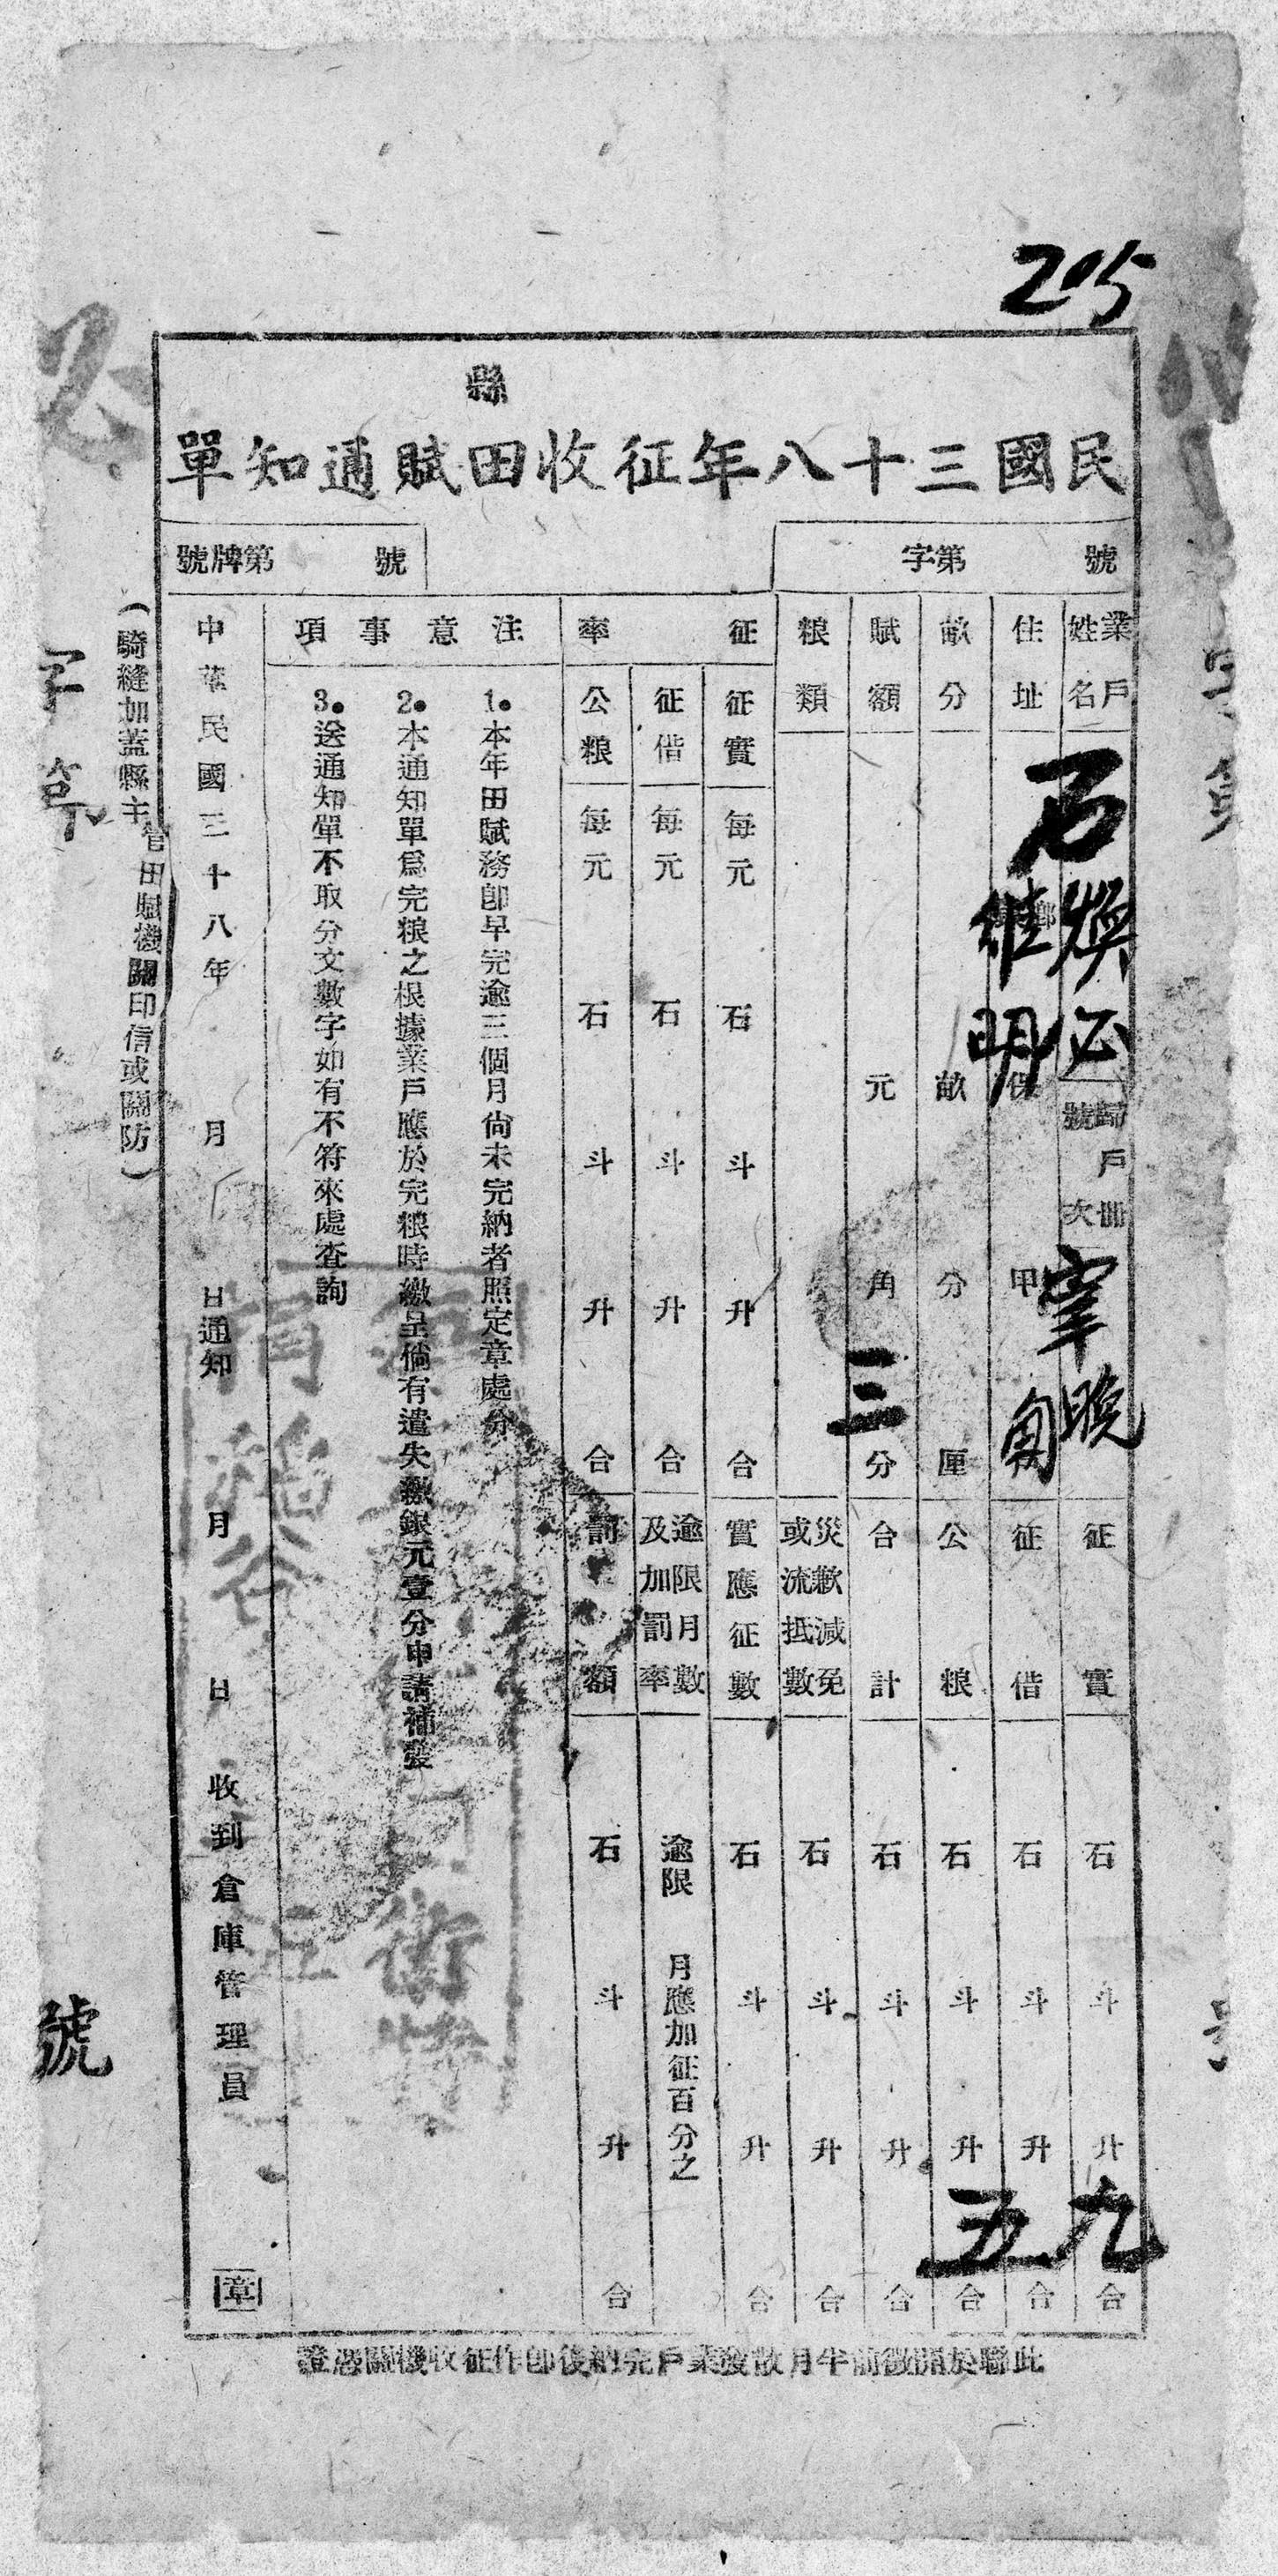 205
縣
民國三十八年征收田賦通知單
字第 號
號牌第 號
業戶姓名 石煥正 維明 歸戶冊號次 征實 石 斗 升 九 合
住址 鄉 保 甲 征借 石 斗 升 合
畝分 畝 分 厘 公粮 石 斗 升 五 合
賦額 元 角 三三 分 合計 石 斗 升 合
粮類 災歉減免或流抵數 石 斗 升 合
征率
征實 每元 石 斗 升 合 實應征數 石 斗 升 合
征借 每元 石 斗 升 合 逾限月數及加罰率 逾限 月應加征百分之
公粮 每元 石 斗 升 合 罰額 石 斗 升 合
注意事項
1.本年田賦務卽早完逾三個月尙未完納者照定章處分
2.本通知單爲完粮之根據業戶應於完粮時繳呈倘有遺失繳銀元壹分申請補發
3.送通知單不取分文數字如有不符來處查詢
中華民國三十八年 月 日通知 月 日 收到倉庫管理員 章
(騎縫加蓋縣主管田賦機關印信或關防)
字第 號
此聯於開徵前半月散發業戶完納後卽作征收機關憑證